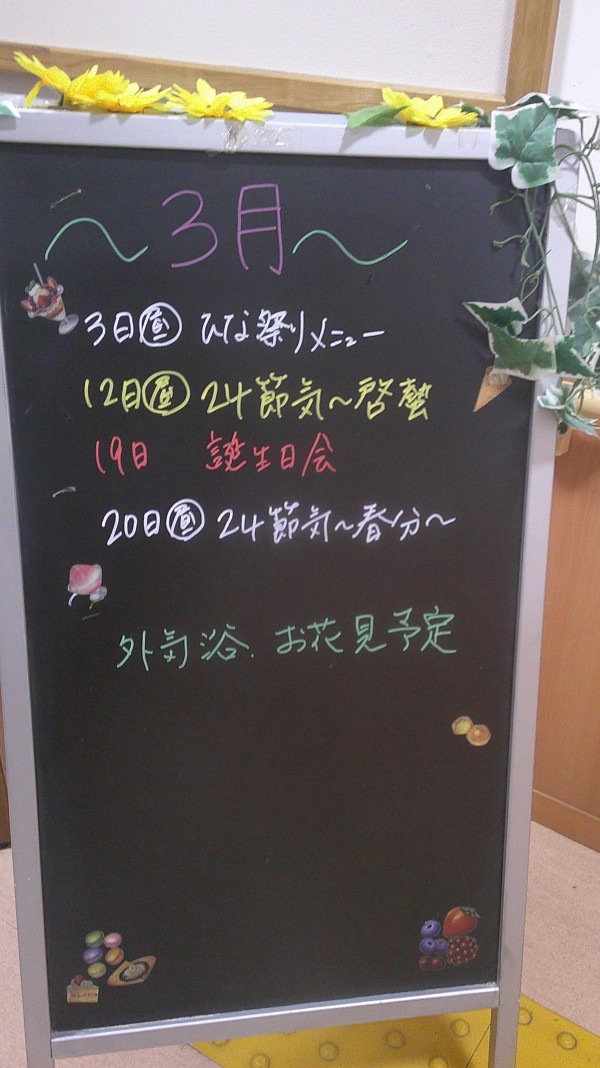 ～3月～
3日㊐昼 ひな祭りメニュー
12日 昼 24節気～啓蟄
19日 誕生日会
20日 昼 24節気～春分～
外気浴、お花見予定